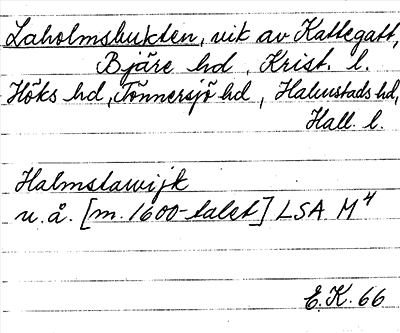 Laholmsbukten, vik av Kattegatt,
Bjäre hd, Krist. l.
Höks hd, Tönnersjö hd, Halmstads hd,
Hall. l.
Halmstawijk
u. å. [m. 1600-talet] LSA. M4
E.K. 66